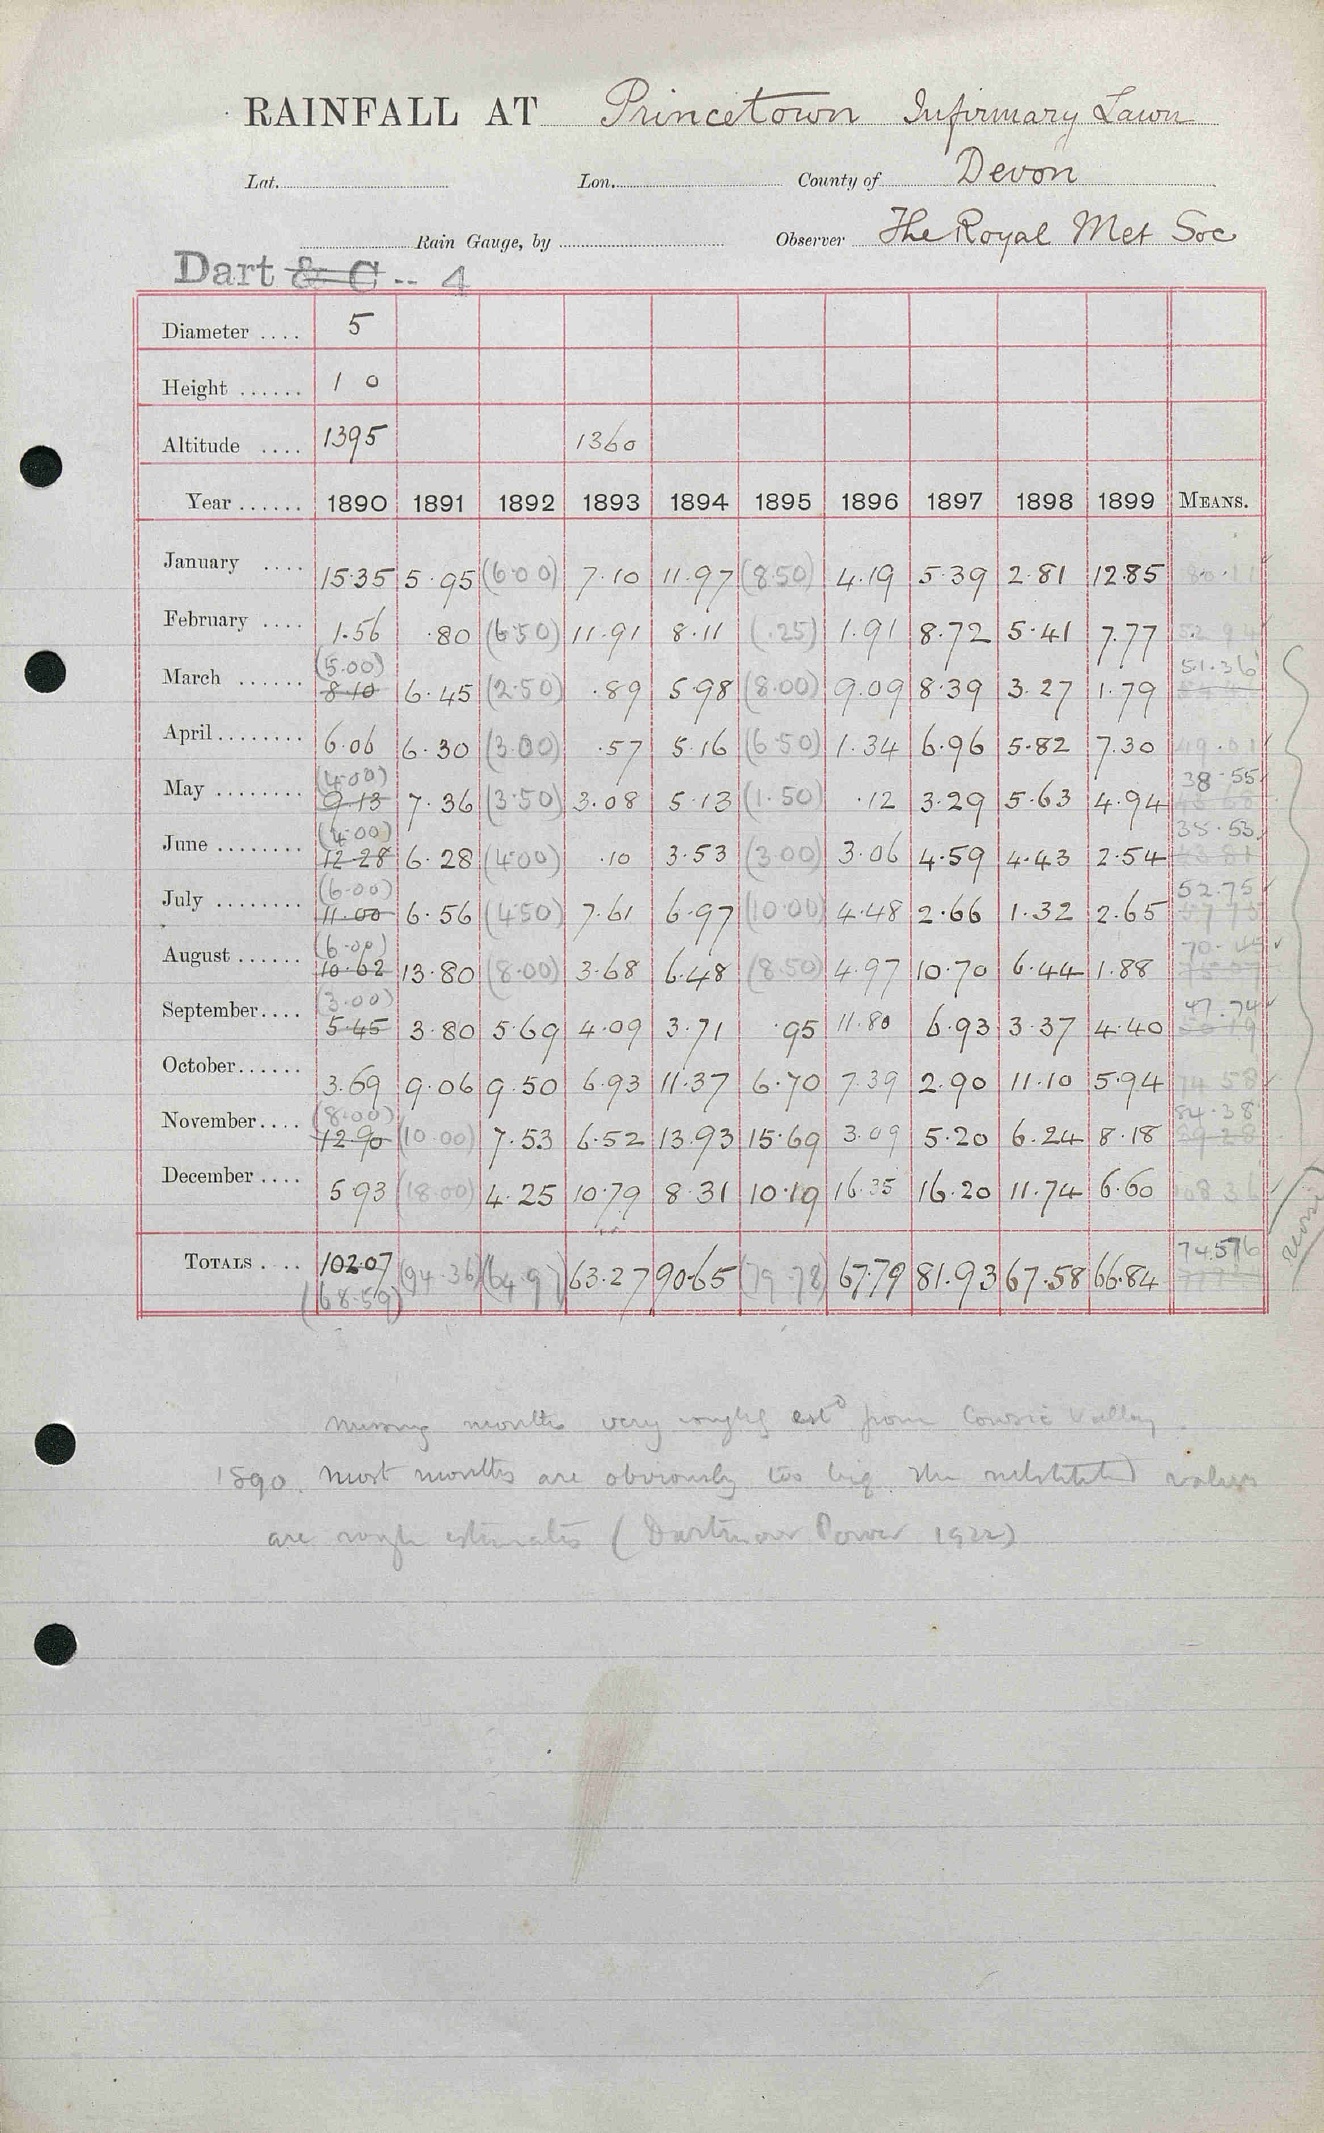 RAINFALL AT Princetown Infirmary Lawn
Lat. Lon. County of Devon
Rain Gauge, by Observer The Royal Met Soc
Dart & C -- 4
Diameter .... 5
Height ...... 1 0
Altitude .... 1395 1360
Year ...... 1890 1891 1892 1893 1894 1895 1896 1897 1898 1899 MEANS.
January .... 15.35 5.95 (6.00) 7.10 11.97 (8.50) 4.19 5.39 2.81 12.85 80.11
February .... 1.56 .80 (6.50) 11.91 8.11 (.25) 1.91 8.72 5.41 7.77 52.94
(5.00) 51.36
March ...... 8.10 6.45 (2.50) .89 5.98 (8.00) 9.09 8.39 3.27 1.79
April ........ 6.06 6.30 (3.00) .57 5.16 (6.50) 1.34 6.96 5.82 7.30 49.01
(4.00) 38.55
May ........ 9.13 7.36 (3.50) 3.08 5.13 (1.50) .12 3.29 5.63 4.94
(4.00) 35.53
June ........ 12.28 6.28 (4.00) .10 3.53 (3.00) 3.06 4.59 4.43 2.54 43.81
(6.00) 52.75
July ........ 11.00 6.56 (4.50) 7.61 6.97 (10.00) 4.48 2.66 1.32 2.65 57.75
(6.00) 70.45
August ...... 10.62 13.80 (8.00) 3.68 6.48 (8.50) 4.97 10.70 6.44 1.88 75.07
(3.00) 47.74
September.... 5.45 3.80 5.69 4.09 3.71 .95 11.80 6.93 3.37 4.40 50.19
October...... 3.69 9.06 9.50 6.93 11.37 6.70 7.39 2.90 11.10 5.94 74.58
(8.00) 84.38
November.... 12.90 (10.00) 7.53 6.52 13.93 15.69 3.09 5.20 6.24 8.18 89.28
December .... 5.93 (18.00) 4.25 10.79 8.31 10.19 16.35 16.20 11.74 6.60 108.36
74.576
TOTALS .... 102.07 (94.36) (64.97) 63.27 90.65 (79.78) 67.79 81.93 67.58 66.84
(68.59)
missing months very roughly estd from Cowsic Valley.
1890. Most months are obviously too big. The substituted values
are rough estimates (Dartmoor Power 1922)